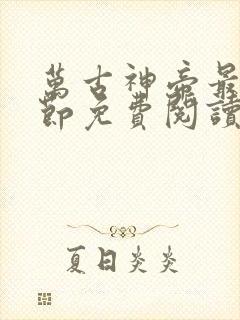 萬古神帝最
節免費閱讀
夏日炎炎